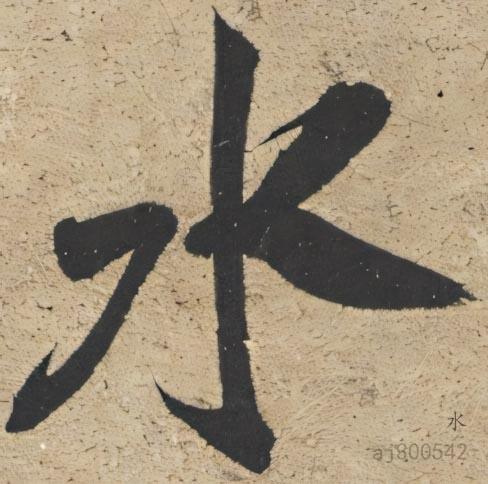 水
水
aj800542